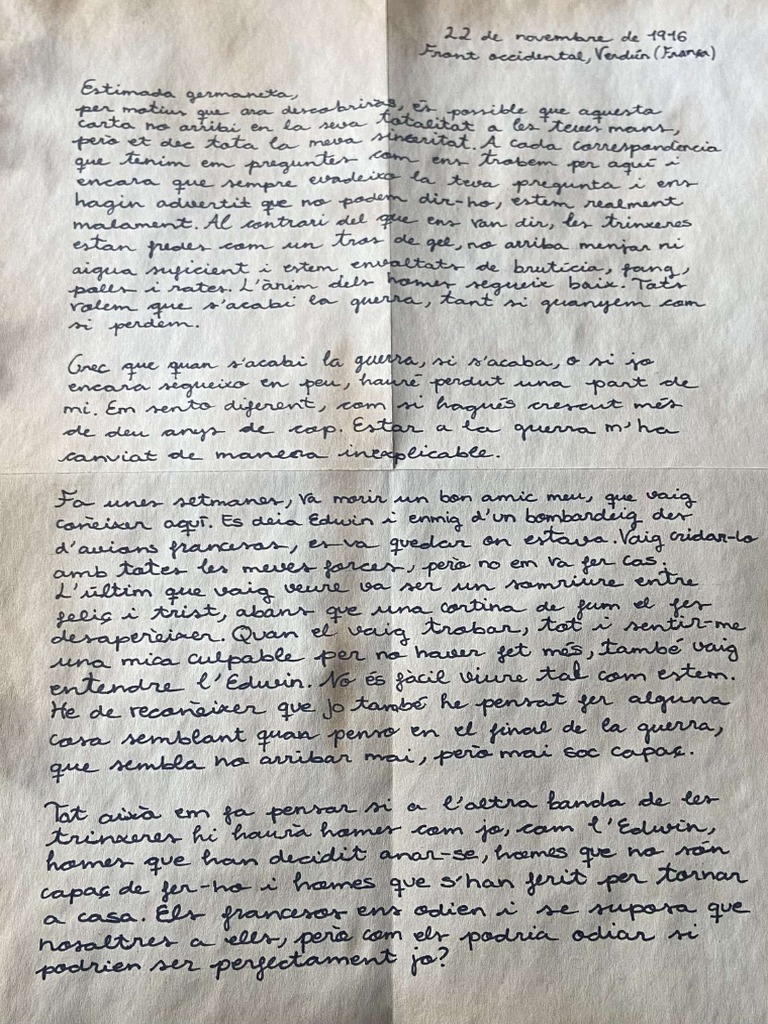 22 de novembre de 1916
Front occidental, Verdún (França)
Estimada germaneta,
per motius que ara descobriràs, és possible que aquesta
carta no arribi en la seva totalitat a les teues mans,
però et dec tota la meva sinceritat. A cada correspondència
que tenim em preguntes com ens trobem per aquí i
encara que sempre evadeixo la teva pregunta i ens
hagin advertit que no podem dir-ho, estem realment
malament. Al contrari del que ens van dir, les trinxeres
estan fredes com un tros de gel, no arriba menjar ni
aigua suficient i estem envoltats de brutícia, fang,
polls i rates. L'ànim dels homes segueix baix. Tots
volem que s'acabi la guerra, tant si guanyem com
si perdem.
Crec que quan s'acabi la guerra, si s'acaba, o si jo
encara segueixo en peu, hauré perdut una part de
mi. Em sento diferent, com si hagués crescut més
de deu anys de cop. Estar a la guerra m'ha
canviat de manera inexplicable.
Fa unes setmanes, va morir un bon amic meu, que vaig
conèixer aquí. Es deia Edwin i enmig d'un bombardeig des
d'avions francesos, es va quedar on estava. Vaig cridar-lo
amb totes les meves forces, però no em va fer cas.
L'últim que vaig veure va ser un somriure entre
feliç i trist, abans que una cortina de fum el fes
desaparèixer. Quan el vaig trobar, tot i sentir-me
una mica culpable per no haver fet més, també vaig
entendre l'Edwin. No és fàcil viure tal com estem.
He de reconèixer que jo també he pensat fer alguna
cosa semblant quan penso en el final de la guerra,
que sembla no arribar mai, però mai soc capaç.
Tot això em fa pensar si a l'altra banda de les
trinxeres hi haurà homes com jo, com l'Edwin,
homes que han decidit anar-se, homes que no són
capaç de fer-ho i homes que s'han ferit per tornar
a casa. Els francesos ens odien i se suposa que
nosaltres a ells, però com els podria odiar si
podrien ser perfectament jo?